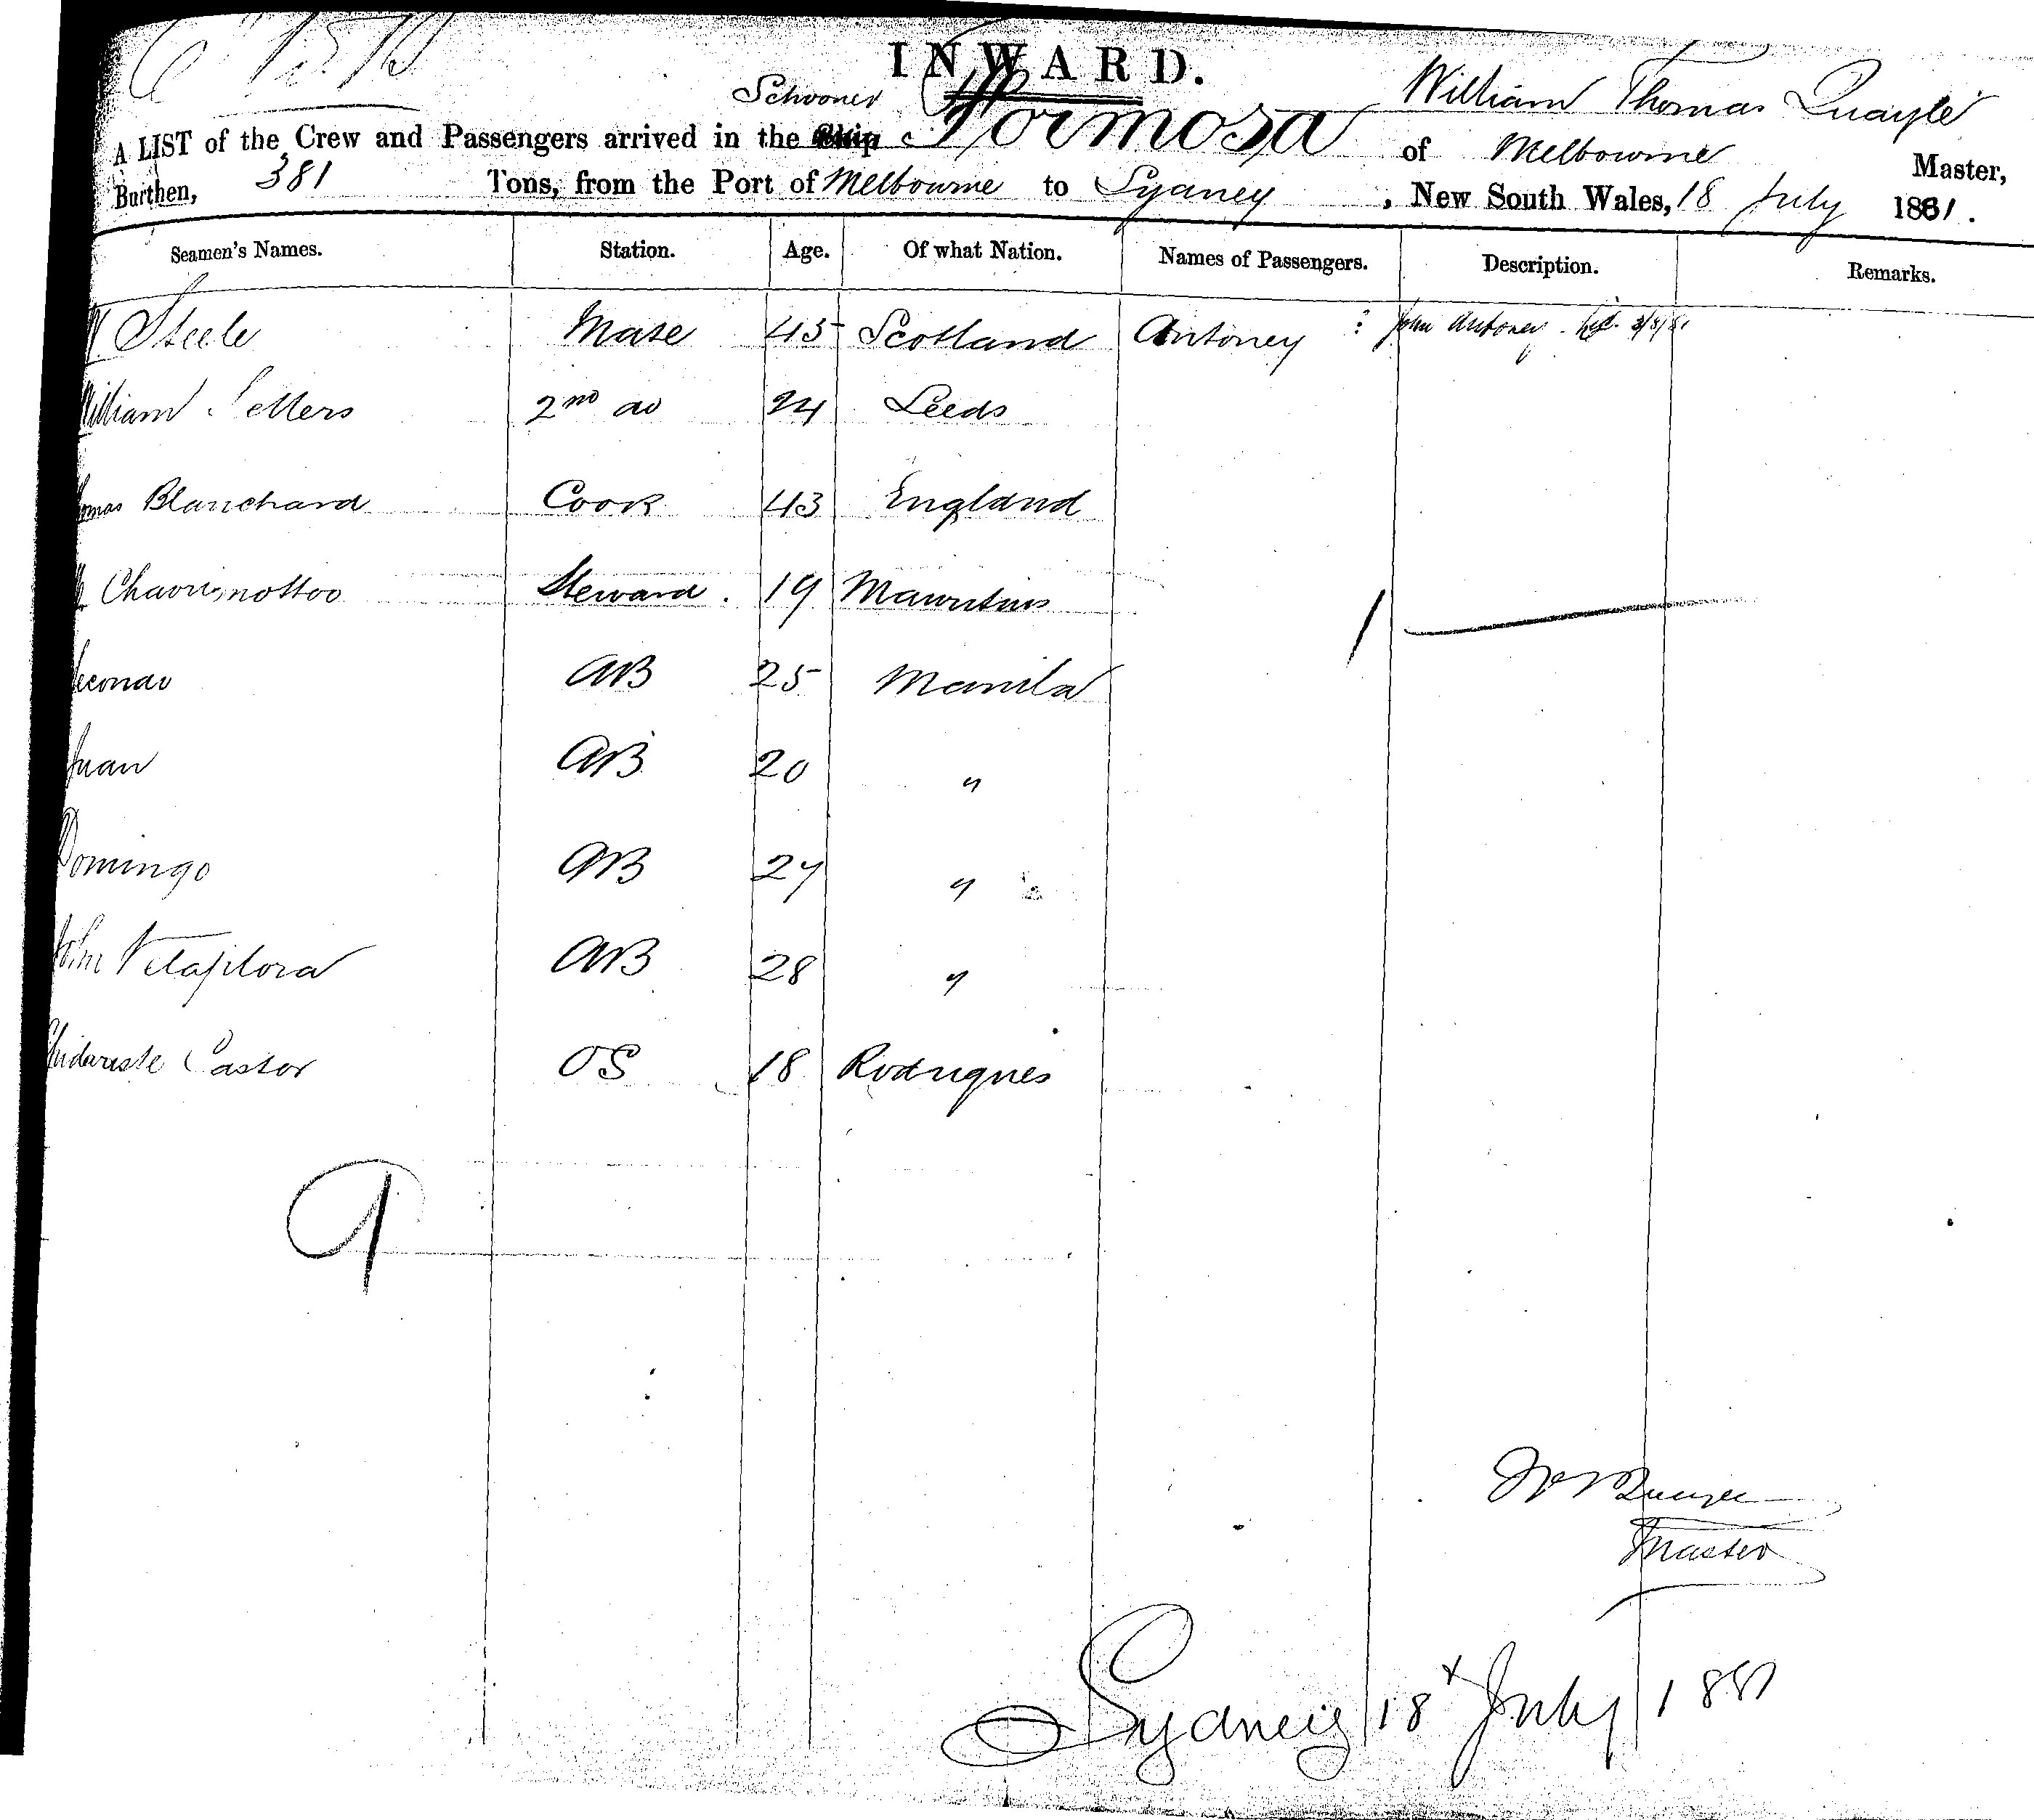 INWARD.
Schooner
William Thomas Quayle
A LIST of the Crew and Passengers arrived in the Ship Formosa of Melbourne Master,
Burthen, 381 Tons, from the Port of Melbourne to Sydney, New South Wales, 18 July 1881.
Seamen's Names. Station. Age. Of what Nation. Names of Passengers. Description. Remarks.
Steele Mate 45 Scotland Antoney : John Antoney
William Sellers 2nd do 24 Leeds
Blanchard Cook 43 England
Steward. 19 Mauritius
AB 25 Manila
Juan AB 20 "
Domingo AB 27 "
John AB 28 "
Castor OS 18 Rodrigues
1
9
Master
Sydney 18 July 1881